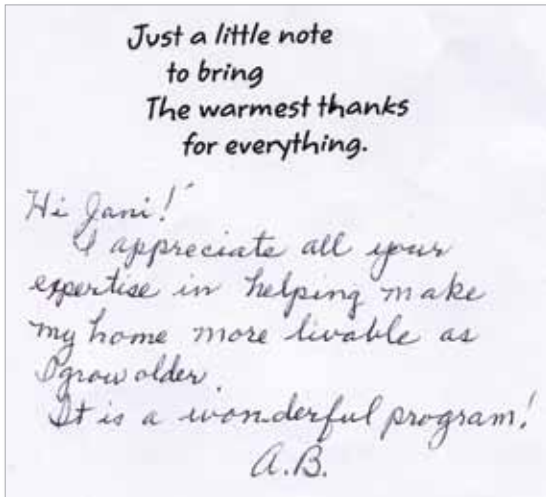 Just a little note
to bring
The warmest thanks
for everything.
Hi Jani!
I appreciate all your
expertise in helping make
my home more livable as
I grow older.
It is a wonderful program!
A.B.